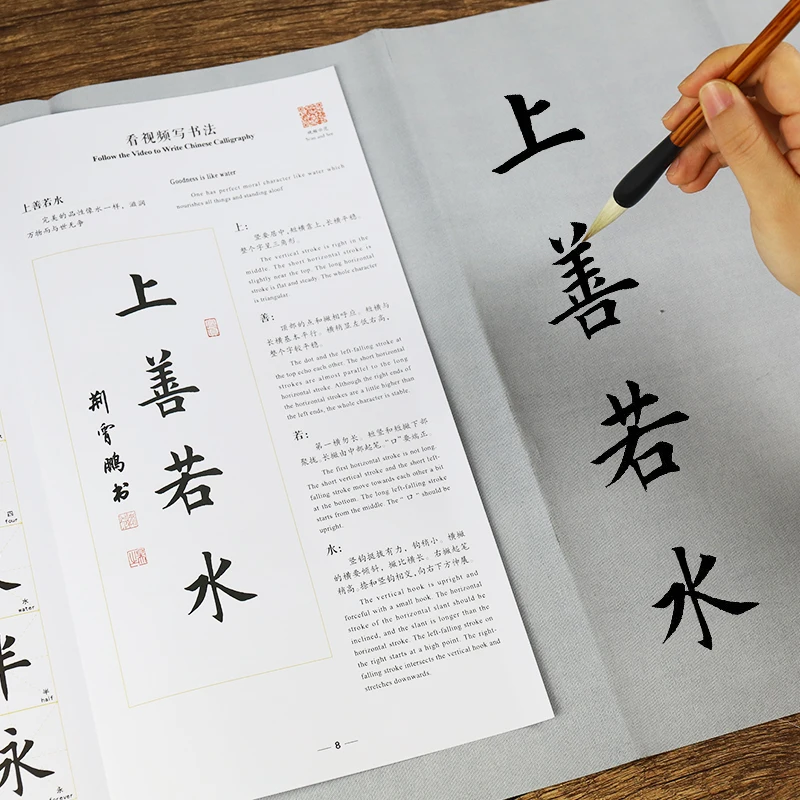 看视频写书法
Follow the Video to Write Chinese Calligraphy
上善若水
完美的品性像水一样，滋润
万物而与世无争
Goodness is like water
One has perfect moral character like water which
nourishes all things and standing aloof
上
善
若
水
荆霄鹏书
上：
竖要居中，短横靠上，长横平稳。
整个字呈三角形。
The vertical stroke is right in the
middle. The short horizontal stroke is
slightly near the top. The long horizontal
stroke is flat and steady. The whole character
is triangular.
善：
顶部的点和撇相呼应。短横与
长横基本平行。横稍显左低右高，
整个字较平稳。
The dot and the left-falling stroke at
the top echo each other. The short horizontal
strokes are almost parallel to the long
horizontal stroke. Although the right ends of
the horizontal strokes are a little higher than
the left ends, the whole character is stable.
若：
第一横勿长。短竖和短撇下部
聚拢。长撇由中部起笔。“口”要端正。
The first horizontal stroke is not long.
The short vertical stroke and the short left-
falling stroke move towards each other a bit
at the bottom. The long left-falling stroke
starts from the middle. The “口” should be
upright.
水：
竖钩挺拔有力，钩稍小。横撇
的横要倾斜，撇比横长。右撇起笔
稍高。捺和竖钩相交，向右下方伸展。
The vertical hook is upright and
forceful with a small hook. The horizontal
stroke of the horizontal slant should be
inclined, and the slant is longer than the
horizontal stroke. The left-falling stroke on
the right starts at a high point. The right-
falling stroke intersects the vertical hook and
stretches downwards.
8
四
four
水
water
半
半
half
永
永
forever
上
善
若
水